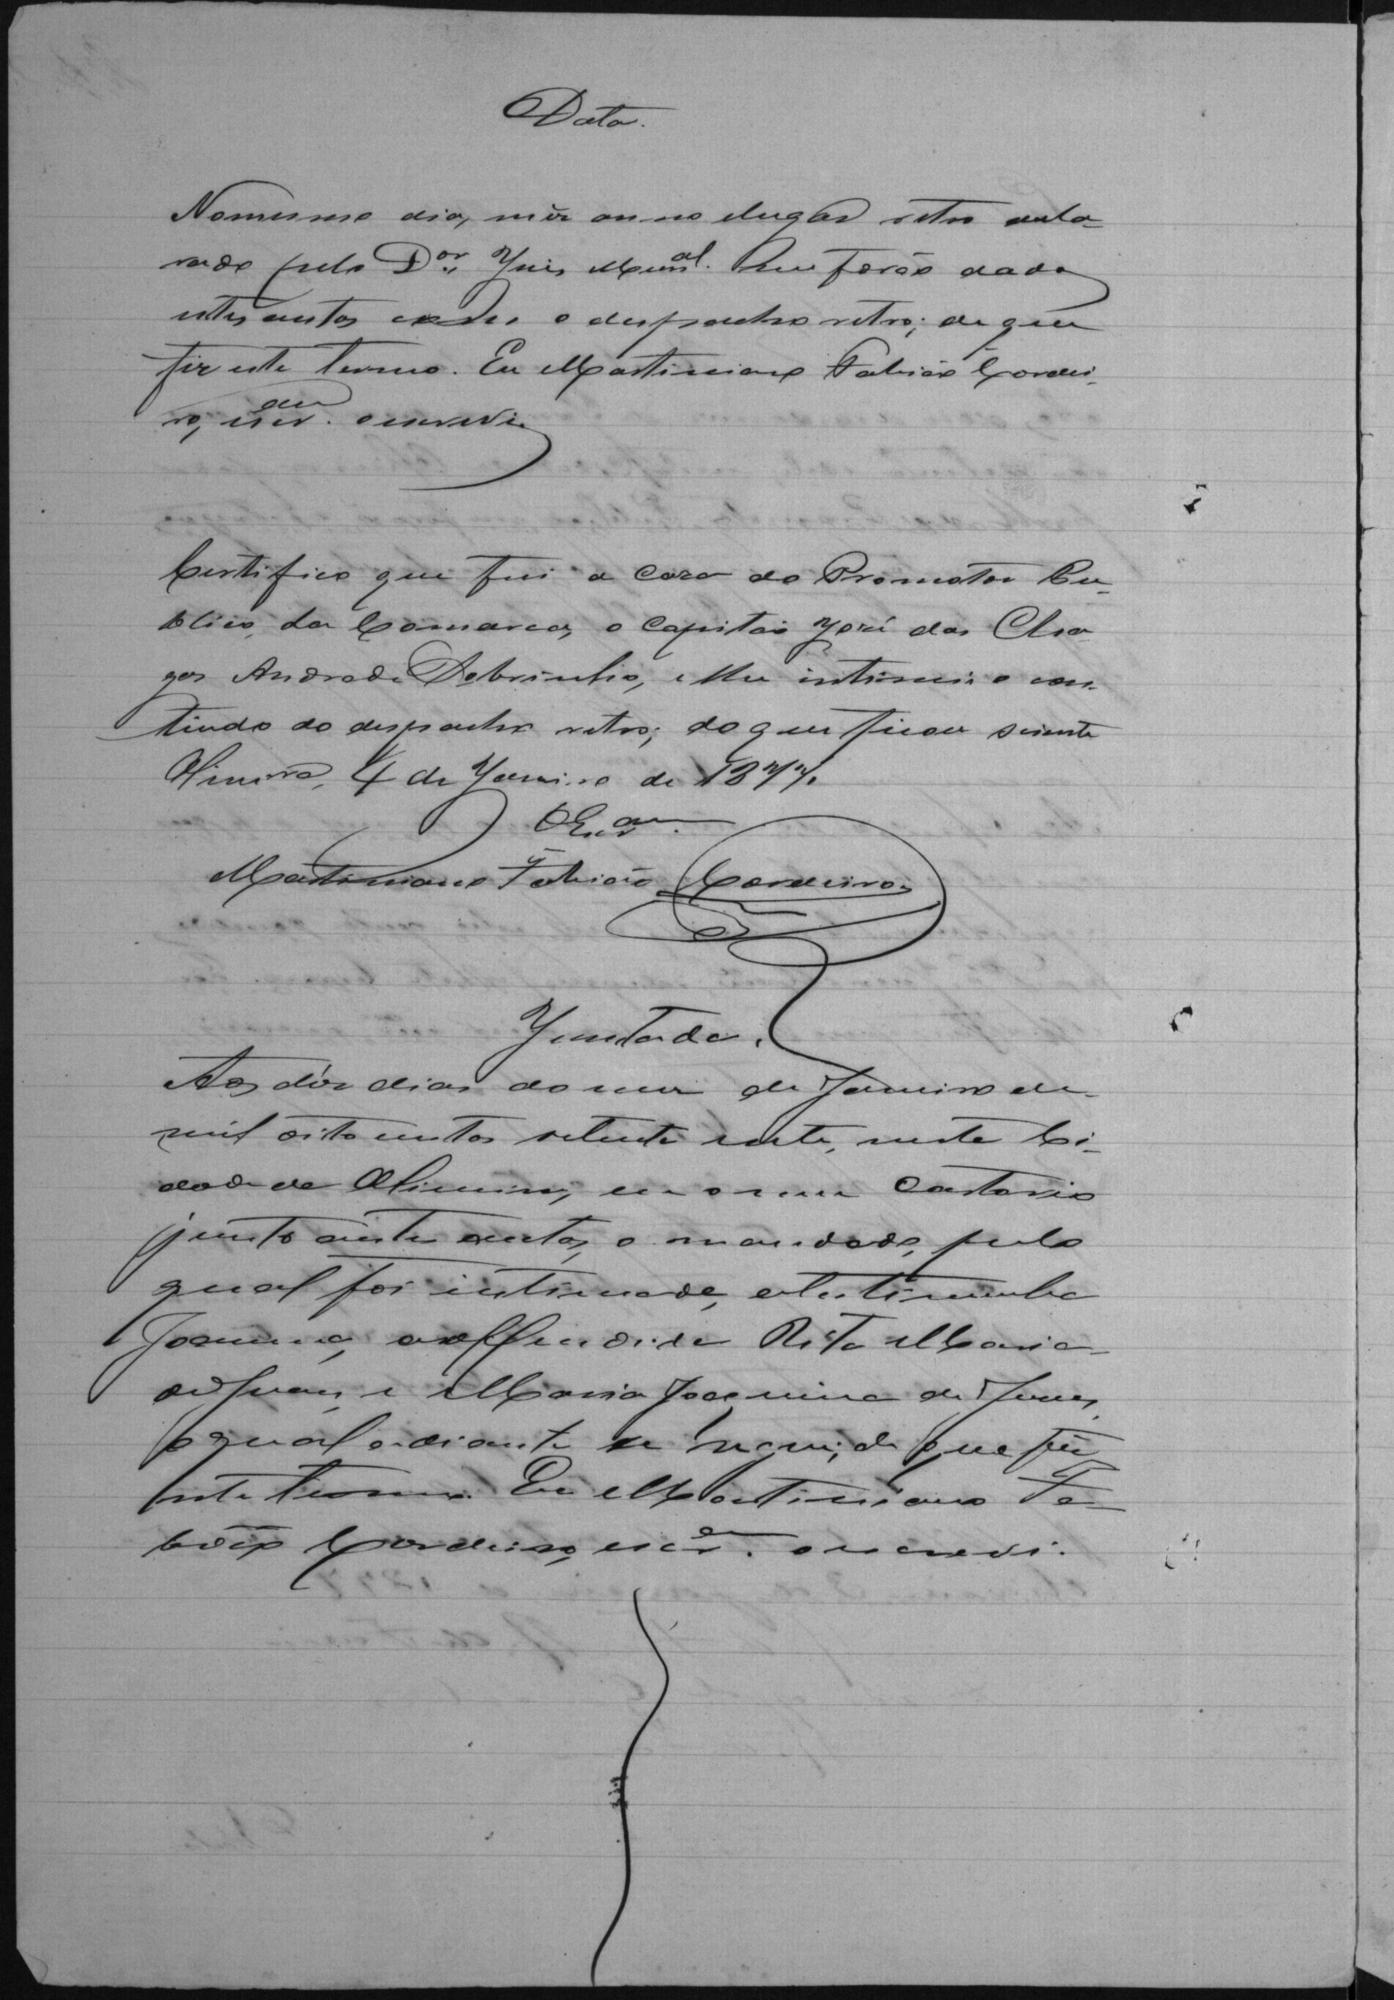 Data.
No mesmo dia, mez anno e lugar retro decla-
rado pelo D.or Juiz Mun.al me forão dados
estes autos com o despacho retro; de que
fiz este termo. Eu Martiniano Fabião Cordei-
ro, escr.am o escrevi
Certifico que fui a caza do Promotor Pu-
blico da Comarca, o Capitão José das Cha-
gas Andrade Sobrinho, e lhe intimei o con-
tiudo do despacho retro; do que ficou sciente
Oliveira, 4 de Janeiro de 1877.
O Escr.am
Martiniano Fabião Cordeiro
Juntada.
Aos déz dias do mez de Janeiro de
mil oitocentos setenta e sete, nesta Ci-
dade de Oliveira, em o meu Cartorio
junto a estes autos, o mandado, pelo
qual foi intimada, a testimunha
Joanna, a offendida Rita Maria
de Jesus, e Maria Joaquina de Jesus,
o qual adiante se segue; de que fiz
este termo. Eu Martiniano Fa-
bião Cordeiro, escr.am o escrevi.